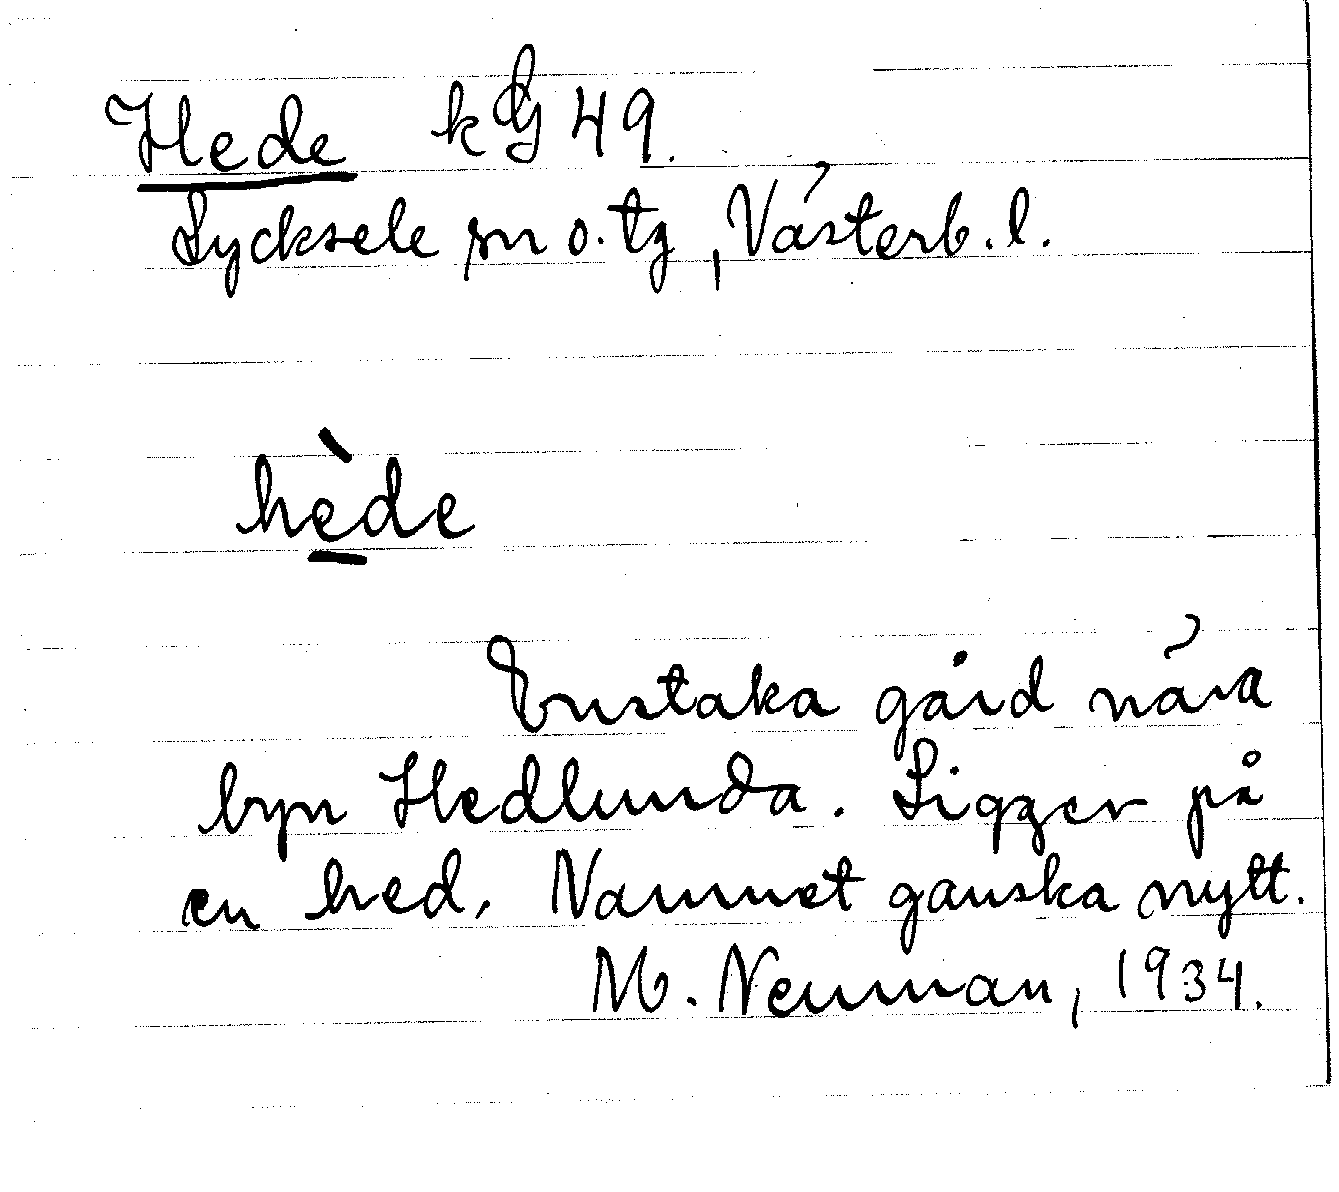 Hede kG 49.
Lycksele sn o. tg, Västerb. l.
hède
Enstaka gård nära
byn Hedlunda. Ligger på
en hed. Namnet ganska nytt.
M. Neuman, 1934.